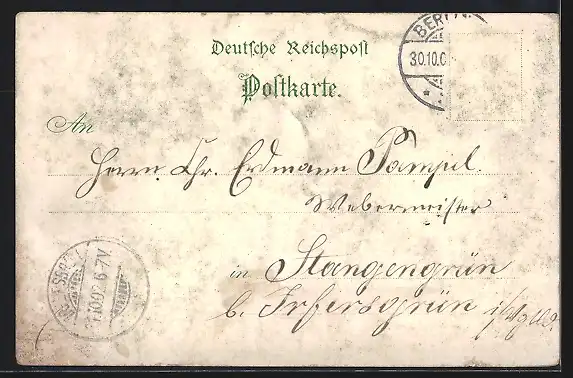 Deutsche Reichspost
Postkarte.
BERLIN
30.10.0
An
Herrn Chr. Erdmann Pampel.
Webermeister
in Stangengrün
b. Irfersgrün i/